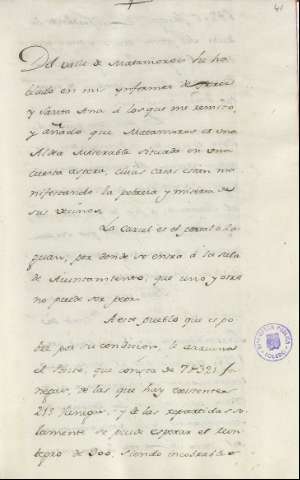 41
Del valle de Matamoros he ha-
blado en mis ynformes de Jerez
y Santa Ana á los que me remito,
y añado que Matamoros es una
Aldea Miserable situada en una
cuesta aspera, cuias casas estan ma-
nifestando la pobreza y miseria de
sus vecinos.
La Carcel es el portal o za-
guan, por donde se entra á la sala
de Ayuntamiento, que uno y otra
no puede ser peor.
A este pueblo que es po-
bre por su condicion, le arruina
el Posito, que consta de 7@321 fa-
negas, de las que hay existentes
213 fanegas, y de las repartidas so-
lamente se puede esperar el rein-
tegro de 300, siendo incobrables
BIBLIOTECA PUBLICA
TOLEDO